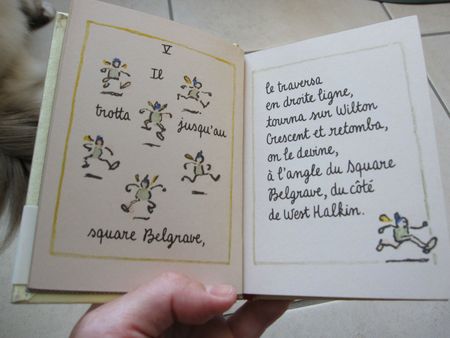 V
Il
trotta
jusqu'au
square Belgrave,
le traversa
en droite ligne,
tourna sur Wilton
Crescent et retomba,
on le devine,
à l'angle du Square
Belgrave, du côté
de West Halkin.